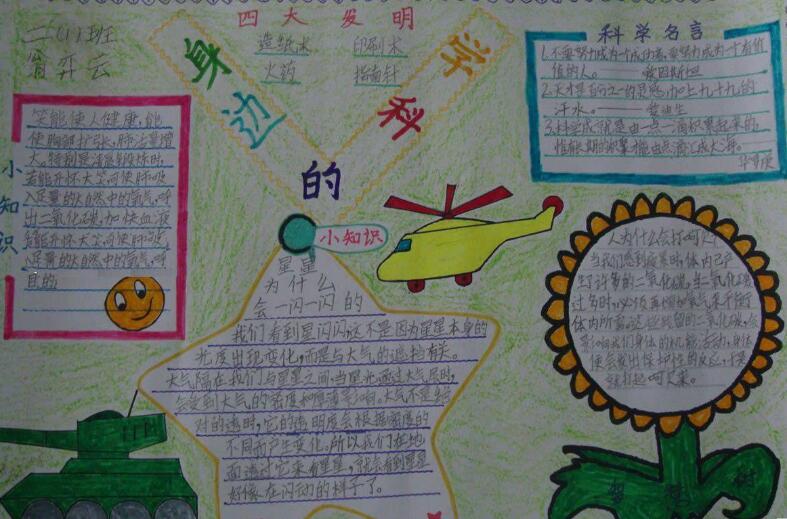 二(1)班
翁弈云
四大发明
造纸术 印刷术
火药 指南针
身边的科学
科学名言
1.不要努力成为一个成功者,要努力成为一个有价
值的人。——爱因斯坦
2.天才是百分之一的灵感,加上九十九的
汗水。——爱迪生
3.科学成就是由一点一滴积累起来的,
惟有长期的积累才能由点滴汇成大海。
华罗庚
小知识
笑能使人健康,能
使胸部扩张,肺活量增
大。特别是清晨锻炼时,
若能开怀大笑,可使肺吸
入足量的大自然中的氧气,呼
出二氧化碳,加快血液
若能开怀大笑可使肺吸
入足量的大自然中的氧气,呼
小知识
星星
为什么
会一闪一闪的
我们看到星闪闪,这不是因为星星本身的
光度出现变化,而是与大气的遮挡有关。
大气隔在我们与星星之间,当星光通过大气层时,
会受到大气的密度和厚薄影响。大气不是绝
对的透明,它的透明度会根据密度的
不同而产生变化。所以我们在地
面透过它来看星星,就会看到星星
好像在闪动的样子了。
人为什么会打呵欠?
当我们感到疲累时,体内已产
生了许多的二氧化碳。当二氧化碳
过多时,必须再增加氧气来平衡
体内所需。这些残留的二氧化碳,会
影响我们身体的机能活动,身体
便会发出保护性的反应,于是
就打起呵欠来。